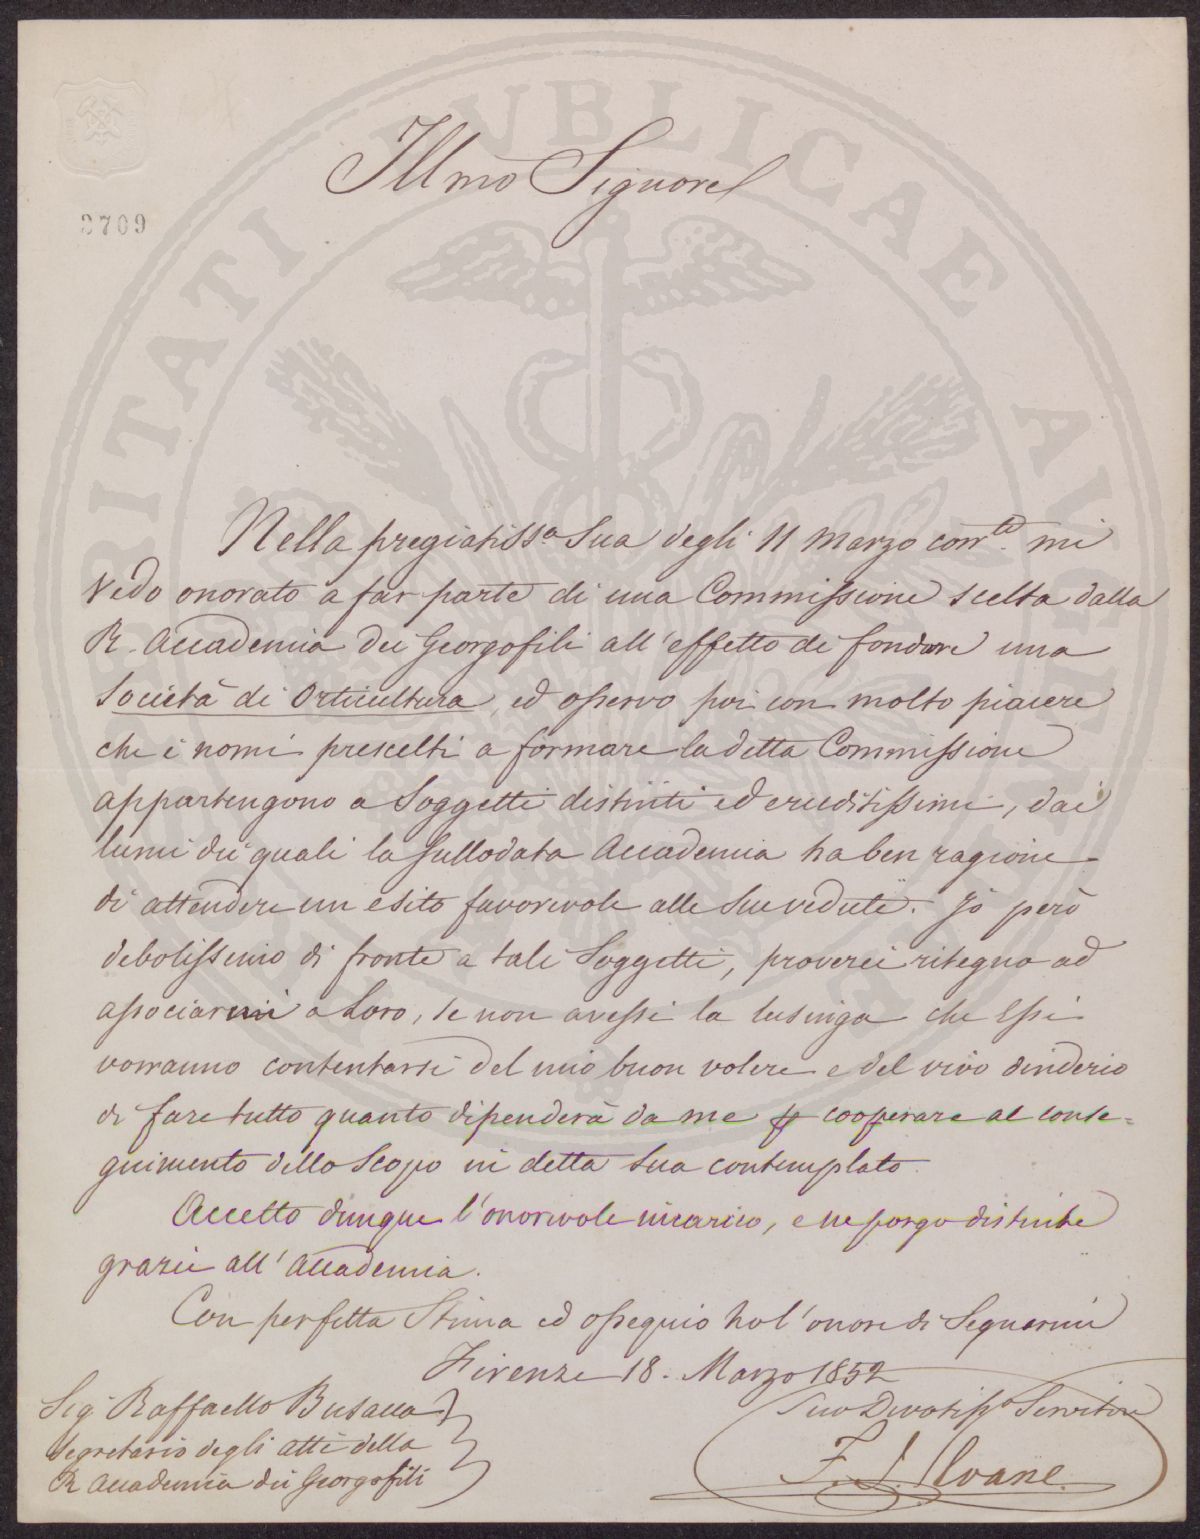 PROSPERITATI PUBLICAE AUGENDAE
3709
Illmo Signore
Nella pregiatissa Sua degli 11 Marzo corrte. mi
vedo onorato a far parte di una Commissione scelta dalla
R. Accademia dei Georgofili all'effetto di fondare una
Società di Orticultura, ed osservo poi con molto piacere
che i nomi prescelti a formare la detta Commissione
appartengono a Soggetti distinti ed eruditissimi, dai
lumi dei quali la sullodata Accademia ha ben ragione
di attendere un esito favorevole alle sue vedute. Io però
debolissimo di fronte a tali Soggetti, proverei ritegno ad
associarmi a Loro, se non avessi la lusinga che Essi
vorranno contentarsi del mio buon volere e del vivo desiderio
di fare tutto quanto dipenderà da me p cooperare al conse=
guimento dello Scopo in detta Sua contemplato.
Accetto dunque l'onorevole incarico, e ne porgo distinte
grazie all'Accademia.
Con perfetta Stima ed ossequio ho l'onore di Segnarmi
Firenze 18. Marzo 1852
Suo Devotisso Servitore
F. Sloane.
Sig. Raffaello Busacca
Segretario degli atti della
R Accademia dei Georgofili